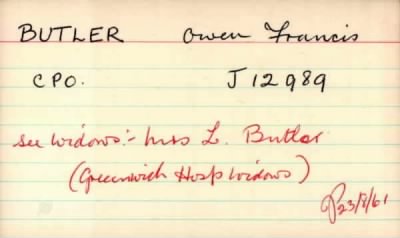 BUTLER Owen Francis
CPO. J 12989
see widows:- Mrs L. Butler
(Greenwich Hosp Widows)
23/8/61